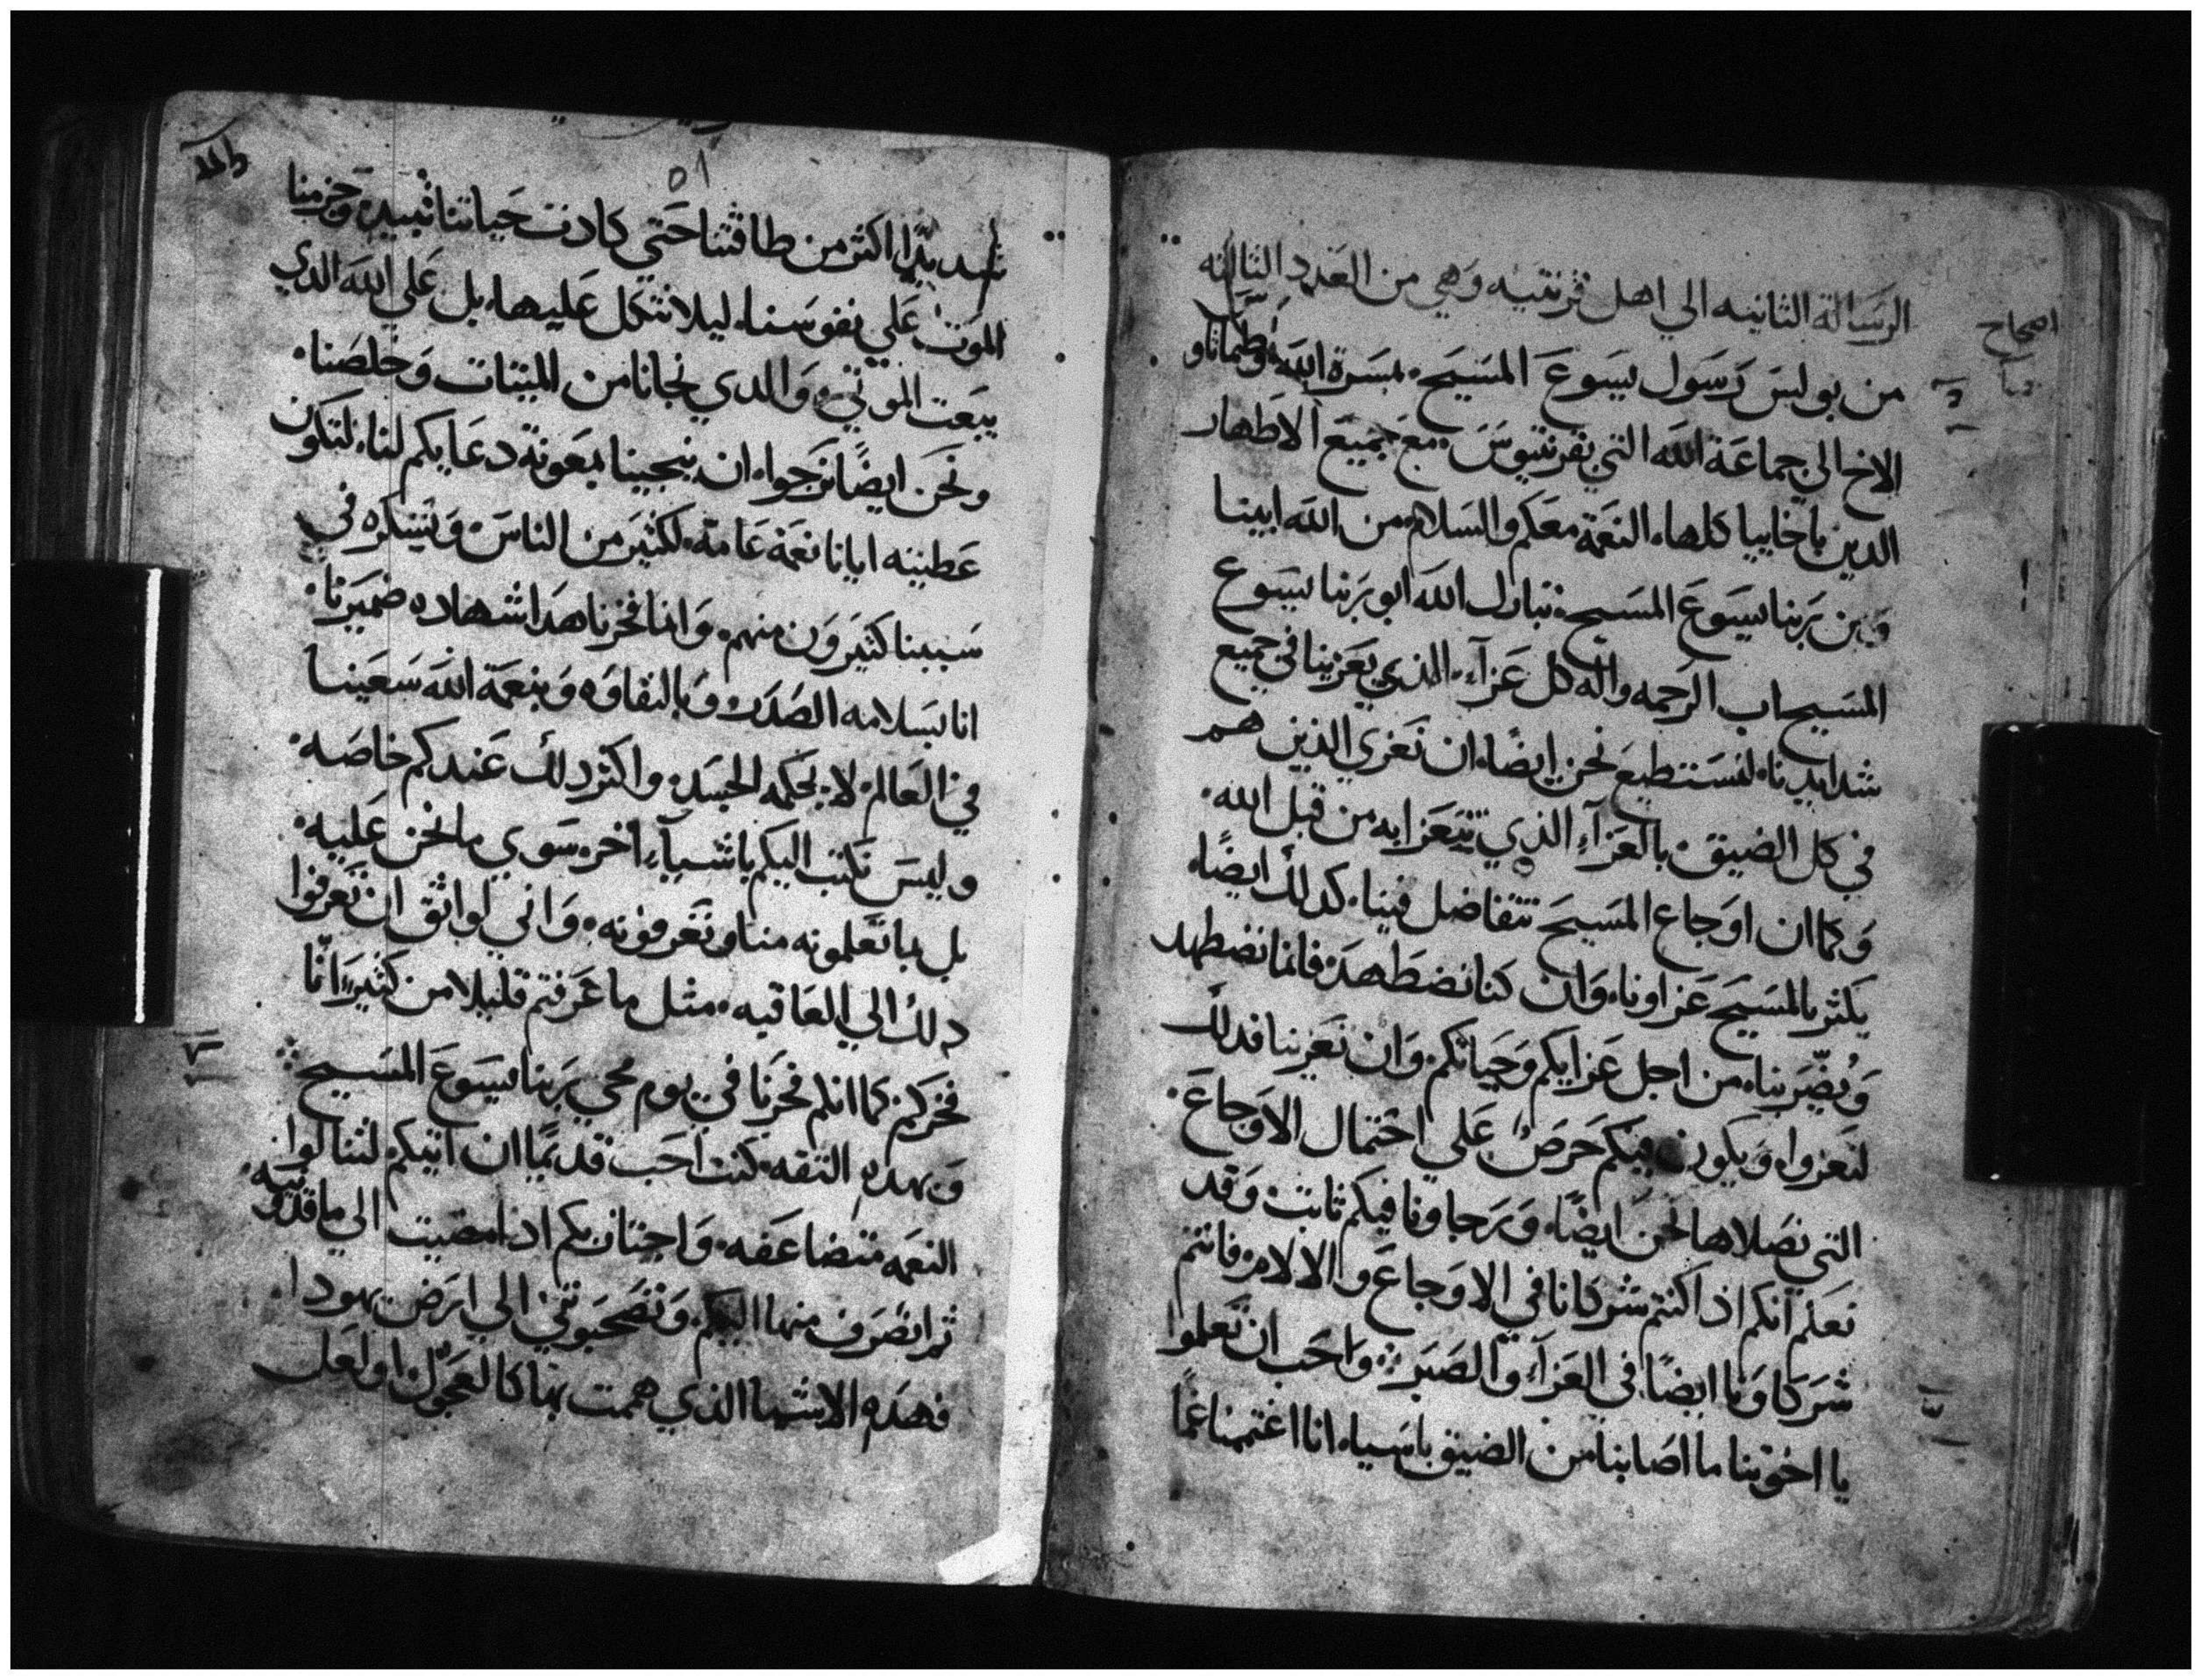 الرسالة الثانيه الي اهل قرنتيه وهي من العدد الثالثه
اصحاح
من بولس رسول يسوع المسيح بمسرة الله وطيماتاوس
الاخ الي جماعة الله التي بقرنتيوس مع جميع الاطهار
الدين باخاييا كلها النعمة معكم والسلام من الله ابينا
ومن ربنا يسوع المسيح تبارك الله ابو ربنا يسوع
المسيح اب الرحمه واله كل عزآء الذي يعزينا في جميع
شدايدنا لنستطيع نحن ايضًا ان نعزي الذين هم
في كل الضيق بالعزآء الذي نتعزا به من قبل الله
وكما ان اوجاع المسيح تتفاضل فينا كدلك ايضًا
يكثر بالمسيح عزاونا وان كنا نضطهد فانما نضطهد
ويضر بنا من اجل عزايكم وحياتكم وان تعزينا فدلك
لتعزوا ويكون فيكم حرص علي احتمال الاوجاع
التي نصلاها نحن ايضًا ورجاونا فيكم ثابت وقد
نعلم انكم اذا كنتم شركانا في الاوجاع والالام فانتم
شركاونا ايضًا في العزآء والصبر واحب ان تعلموا
يا اخوتنا ما اصابنا من الضيق باسيا انا اغتممنا غمًا
٥١
شديدًا اكثر من طاقتنا حتي كادت حياتنا تبيد وجزمنا
الموت علي نفوسنا ليلا نتكل عليها بل علي الله الدي
يبعت الموتي والدي نجانا من الميتات وخلصنا
ونحن ايضًا نرجوا ان ينجينا بمعونة دعايكم لنا لتكون
عطيته ايانا نعمة عامة لكثير من الناس ويشكره في
سببنا كثيرون منهم وانا فخرنا هدا شهاده ضميرنا
انا بسلامه الصدر وبالنقاوه وبنعمة الله سعينا
في العالم لا بحكمه الجسد واكثر دلك عندكم خاصه
وليس نكتب اليكم باشيآء اخر سوي ما نحن عليه
بل بما تعلمونه منا وتعرفونه واني لواثق ان تعرفوا
دلك الي العاقبه مثل ما عرفتم قليلا من كثير انّا
فخركم كما انكم فخرنا في يوم مجي ربنا يسوع المسيح
وبهده التقه كنت احب قديمًا ان اتيكم لتنالوا
النعمه متضاعفه واجتاز بكم اذا مضيت الي ماقدونيه
ثم انصرف منها اليكم وتصحبوني الي ارض يهودا
فهده الاشيا الذي هممت بها كالعجول او لعل